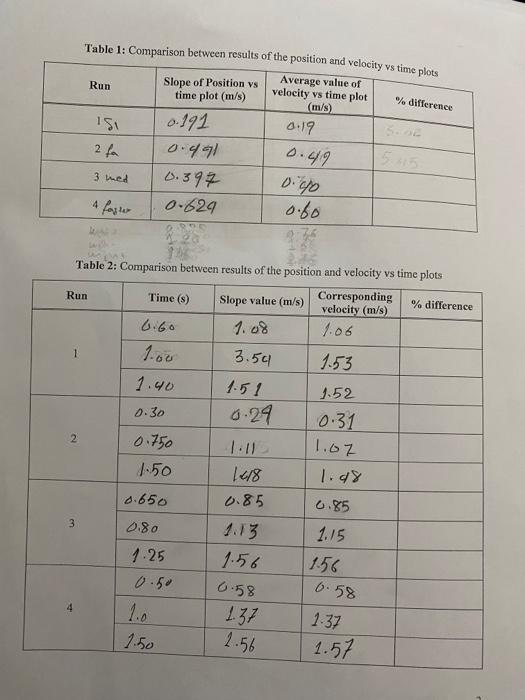 Table 1: Comparison between results of the position and velocity vs time plots
Run
Slope of Position vs time plot (m/s)
Average value of velocity vs time plot (m/s)
% difference
1 Sl 0.191 0.19
2 fa 0.491 0.49
3 med 0.397 0.40
4 faster 0.629 0.60
Table 2: Comparison between results of the position and velocity vs time plots
Run Time (s) Slope value (m/s) Corresponding velocity (m/s) % difference
0.60 1.08 1.06
1 1.00 3.54 1.53
1.40 1.51 1.52
0.30 0.29 0.31
2 0.750 1.11 1.07
1.50 1.48 1.48
0.650 0.85 0.85
3 0.80 1.13 1.15
1.25 1.56 1.56
0.50 0.58 0.58
4 1.0 1.37 1.37
1.50 1.56 1.57